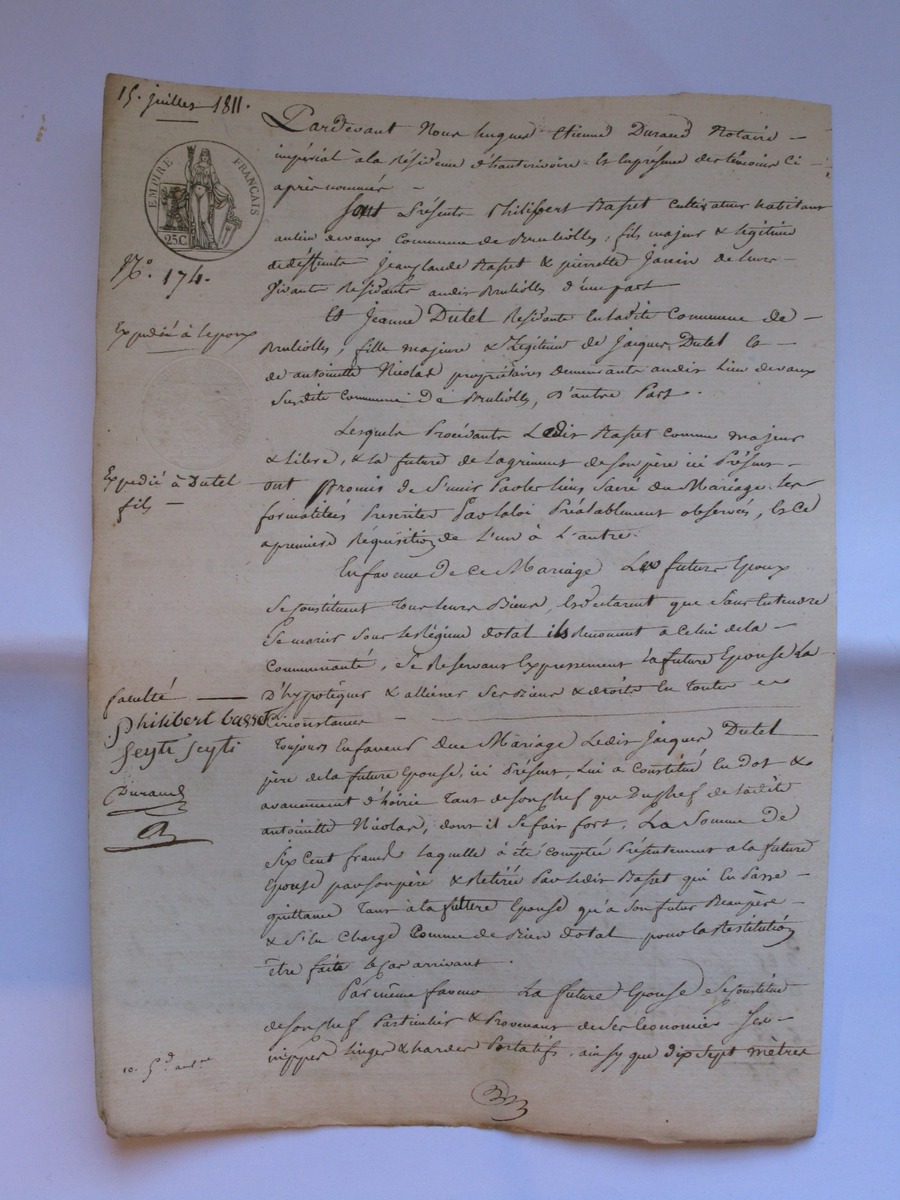 15. juillet 1811.
EMPIRE FRANÇAIS
25C
N.º 174.
Expedié à lepoux
Expedié à Dutel
fils —
Pardevant Nous hugues Etienne Durand Notaire —
impérial à la Résidence d'hauterivoire & En présence des témoins Ci —
après nommés —
Sont Présents Philibert Basset Cultivateur habitant
au lieu devaux Commune de Brulliolles, fils majeur & légitime
de déffunts Jean Claude Basset & pierrette Janin de leurs —
Vivants Résidants audit Brulliolles d'une part
Et Jeanne Dutel Residante En ladite Commune de —
Brulliolles, fille majeure & Légitime de Jacques Dutel &
de antoinette Nicolas propriétaires demeurants audit Lieu devaux
Susdite Commune De Brulliolles, D'autre Part.
Lesquels Procédants Ledit Basset Comme majeur
& Libre, & la future de Lagrément de son père ici Présent —
ont promis de S'unir Par les liens Sacré du Mariage. les
formalitées Prescrites Par la loi Préalablement observées, & Ce
a premiere Réquisition de L'un à L'autre.
En faveur De Ce Mariage Les futurs Epoux
Se Constituent Tous leurs Biens, & déclarent que Sans Entendre
Se marier Sous le Régime dotal ils Renoncent a Celui de la —
Communauté, Se Reservant Expressement la future Epouse La
faculté — D'hypotéquer & alliéner Ses Biens & droits En Toutes
Circonstances —
philibert basset
Durand
Toujours En faveur Du Mariage Ledit Jacques Dutel
père de la future Epouse, ici Présent, Lui a Constitué En Dot &
avancement d'hoirie Tant de Son Chef que Du Chef de ladite
antoinette Nicolas, dont il Se fait fort, La Somme de
Six Cent francs Laquelle à été Comptée Présentement a la future
Epouse par son père & Retirée Par Ledit Basset qui En Passe —
quittance Tant à la future Epouse qu'a Son futur Beaupère —
& S'En Charge Comme de Bien dotal pour la Restitution
être faite le Cas arrivant.
Par même faveur La future Epouse Se Constitue
de Son Chef Particulier & Provenant de Ses Economies Ses
nippes linges & hardes Portatifs, ainsy que dix Sept mètres